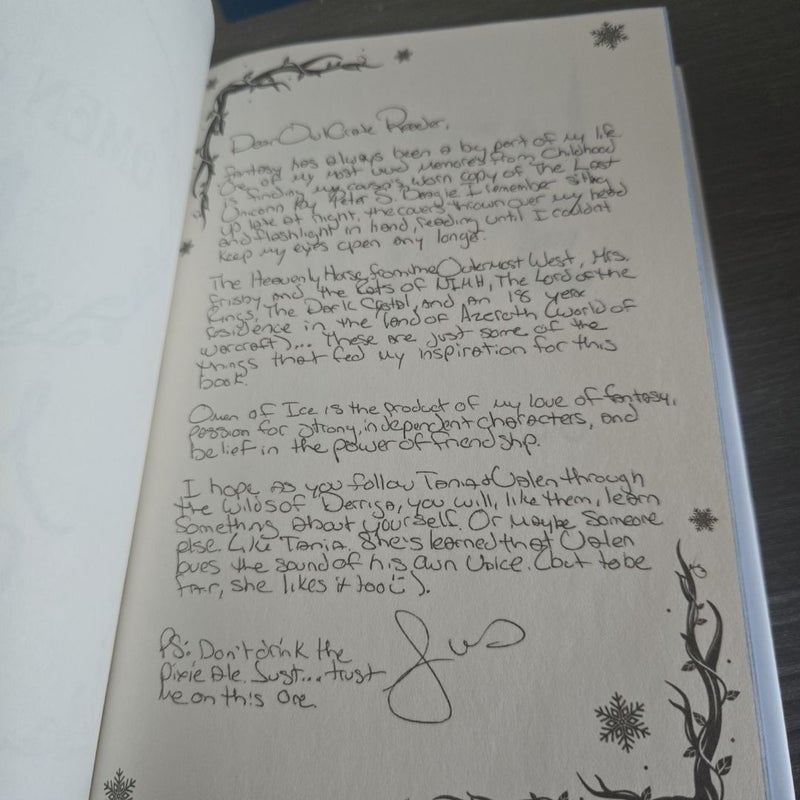 Dear OwlCrate Reader,
Fantasy has always been a big part of my life.
One of my most vivid memories from Childhood
is finding my cousin's worn copy of The Last
Unicorn by Peter S. Beagle. I remember sitting
up late at night, the covers thrown over my head
and flashlight in hand, reading until I couldn't
keep my eyes open any longer.
The Heavenly Horse from the Outermost West, Mrs.
Frisby and the Rats of NIMH, The Lord of the
Rings, The Dark Crystal, and, an 18 year
residence in the land of Azeroth (World of
Warcraft)... These are just some of the
things that fed my inspiration for this
book.
Omen of Ice is the product of my love of fantasy,
passion for strong, independent characters, and
belief in the power of friendship.
I hope as you follow Tania + Valen through
the wilds of Derriga, you will, like them, learn
something about yourself. Or maybe someone
else. Like Tania. She's learned that Valen
loves the sound of his own voice. (but to be
fair, she likes it too :) ).
PS: Don't drink the
Pixie Ale. Just... trust
me on this one.